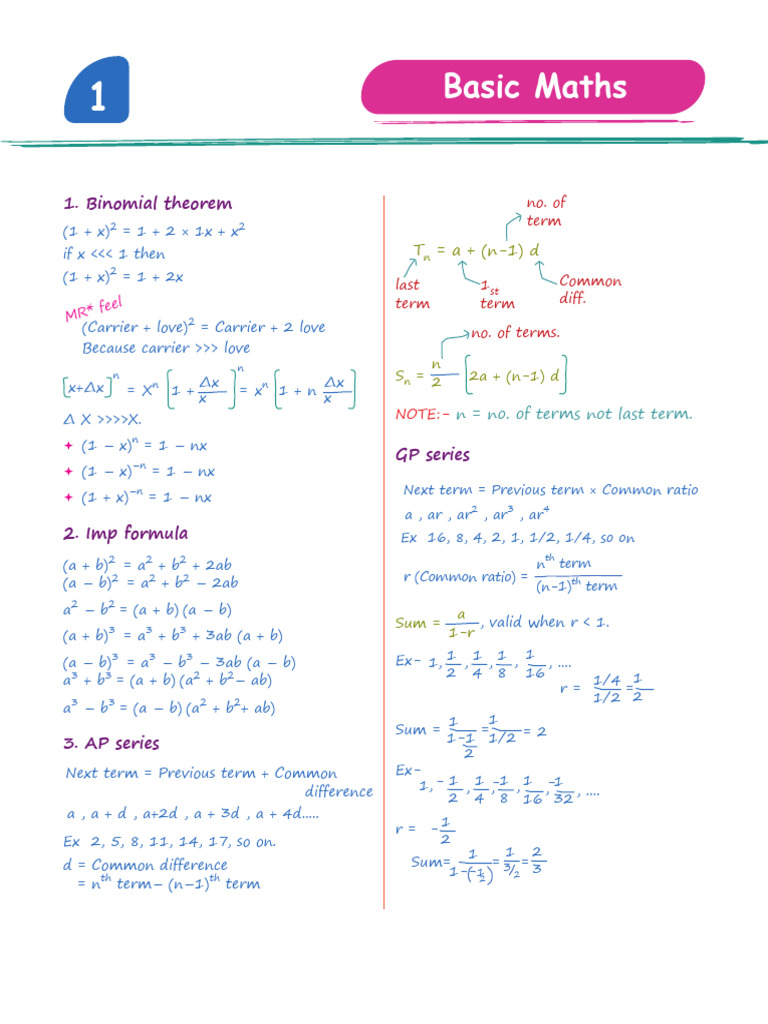 1
Basic Maths
1. Binomial theorem
(1 + x)² = 1 + 2 × 1x + x²
if x <<< 1 then
(1 + x)² = 1 + 2x
MR* feel
(Carrier + love)² = Carrier + 2 love
Because carrier >>> love
[x+Δx]ⁿ = Xⁿ [1 + Δx/x]ⁿ = xⁿ [1 + n Δx/x]
Δ X >>>>X.
+ (1 – x)ⁿ = 1 – nx
+ (1 – x)⁻ⁿ = 1 – nx
+ (1 + x)⁻ⁿ = 1 – nx
2. Imp formula
(a + b)² = a² + b² + 2ab
(a – b)² = a² + b² – 2ab
a² – b² = (a + b) (a – b)
(a + b)³ = a³ + b³ + 3ab (a + b)
(a – b)³ = a³ – b³ – 3ab (a – b)
a³ + b³ = (a + b) (a² + b² – ab)
a³ – b³ = (a – b) (a² + b² + ab)
3. AP series
Next term = Previous term + Common
difference
a , a + d , a+2d , a + 3d , a + 4d.....
Ex 2, 5, 8, 11, 14, 17, so on.
d = Common difference
= nᵗʰ term – (n–1)ᵗʰ term
no. of
term
Tₙ = a + (n–1) d
last
term
1st
term
Common
diff.
no. of terms.
Sₙ = n/2 [2a + (n–1) d]
NOTE:- n = no. of terms not last term.
GP series
Next term = Previous term × Common ratio
a , ar , ar² , ar³ , ar⁴
Ex 16, 8, 4, 2, 1, 1/2, 1/4, so on
r (Common ratio) = nᵗʰ term / (n–1)ᵗʰ term
Sum = a/1–r , valid when r < 1.
Ex- 1, 1/2, 1/4, 1/8, 1/16, ....
r = 1/4 / 1/2 = 1/2
Sum = 1/(1–1/2) = 1/1/2 = 2
Ex-
1, -1/2, 1/4, -1/8, 1/16, -1/32, ....
r = -1/2
Sum= 1/(1-(-1/2)) = 1/3/2 = 2/3